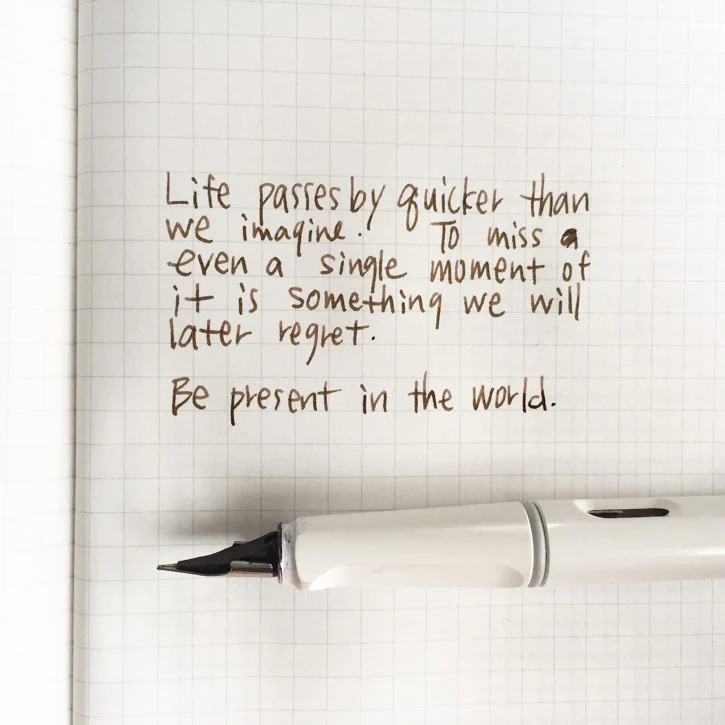 Life passes by quicker than
we imagine. To miss a
even a single moment of
it is something we will
later regret.
Be present in the world.